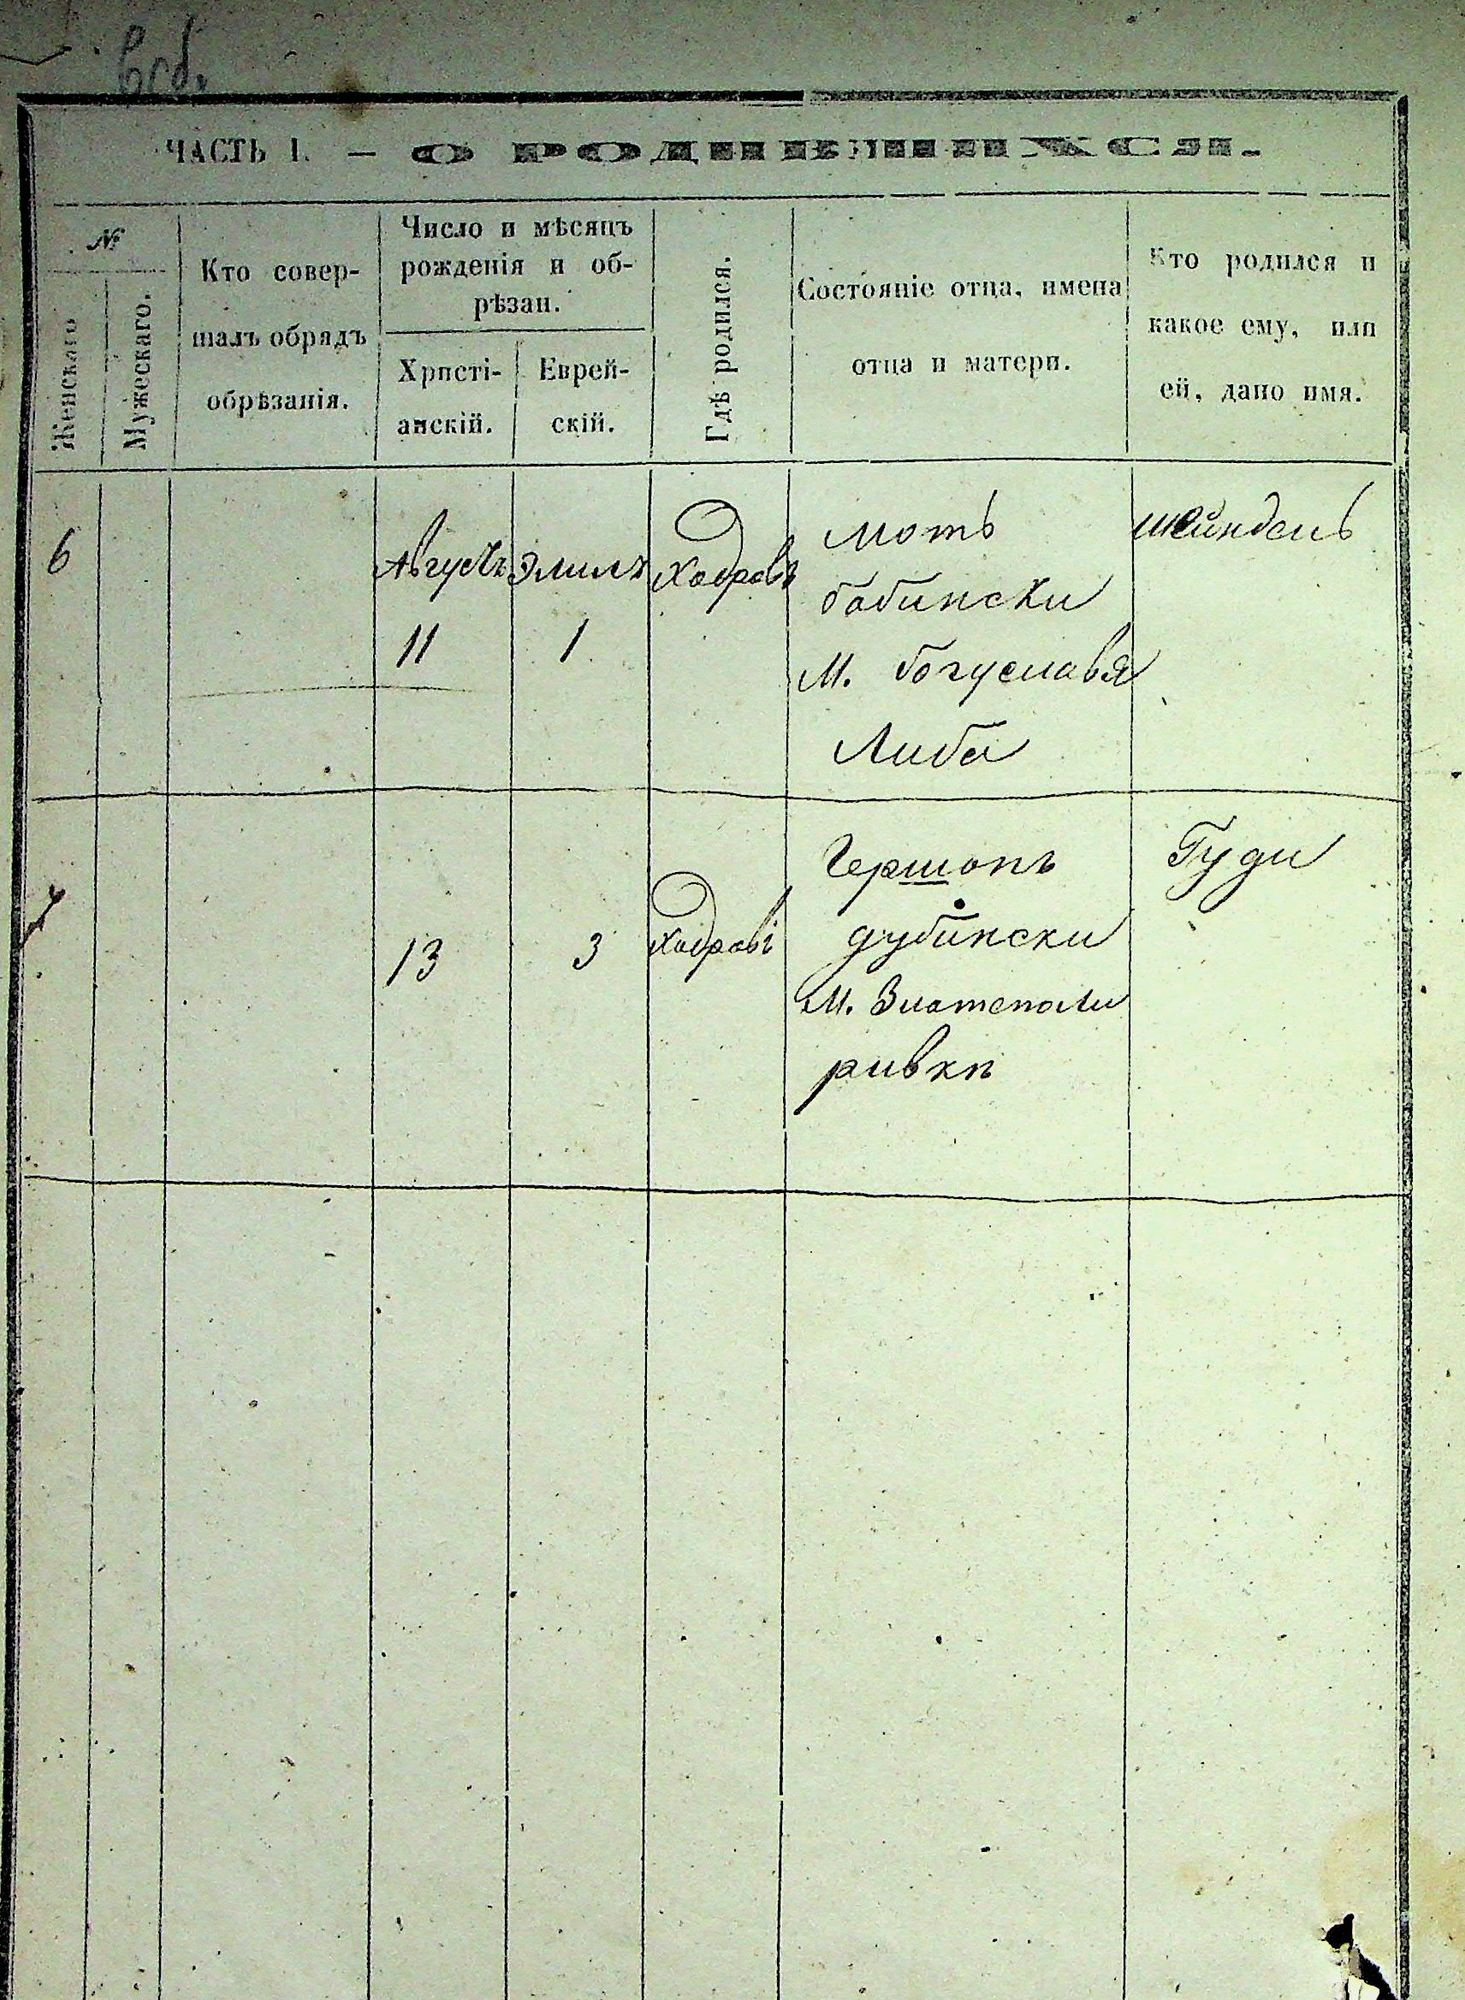 ЧАСТЬ I. — О РОДИВШИХСЯ.
№
Женскаго
Мужескаго.
Кто совер-
шалъ обрядъ
обрѣзанія.
Число и мѣсяцъ
рожденія и об-
рѣзан.
Христі-
анскій.
Еврей-
скій.
Гдѣ родился.
Состояніе отца, имена
отца и матери.
Кто родился и
какое ему, или
ей, дано имя.
6
Августъ
11
Элилъ
1
Ходровѣ
Моть
бабински
М. богуславя
Либа
шейндель
7
13
3
Ходрові
Гершонъ
дубински
М. Златополи
ривки
Гуди